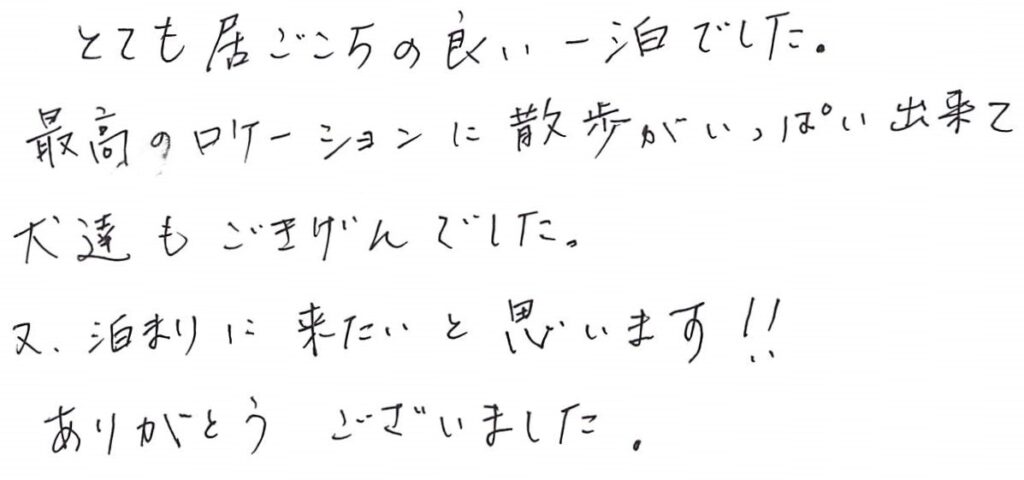 とても居ごこちの良い一泊でした。
最高のロケーションに散歩がいっぱい出来て
犬達もごきげんでした。
又、泊まりに来たいと思います!!
ありがとうございました。